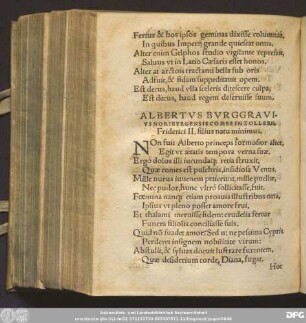 Fertur & hos ipsos geminas dixisse columnas,
In quibus Imperij grande quiescat onus.
Alter enim Gelphos studio vigilante repressit,
Saluus vt in Latio Cæsaris esset honos.
Alter at arctois tractanti bella sub oris
Adfuit, & fidam suppeditauit opem.
Est decus, haud vlla sceleris ditescere culpa,
Est decus, haud regem deseruisse suum.
ALBERTVS BVRGGRAVI,
VS NORIBERGENSIS COMES IN ZOLLERN,
Friderici II. filius natu minimus.
NOn fuit Alberto princeps formosior alter,
Egit vt ætatis tempora verna suæ.
Ergo dolos illi iucundaq; retia struxit,
Quæ comes est pulchris, insidiosa Venus.
Mille nurus iuuenem petierunt, mille puellæ,
Nec pudor, hunc vltrò sollicitasse, fuit.
Fœmina nanq; etiam proauis illustribus orta,
Ipsius vt pleno posset amore frui,
Et thalami meruisse fidem: crudelia fertur
Funera filiolis conciliasse suis.
Quid nõ suadet amor? Sed ne pessuma Cypris
Perderet insignem nobilitate virum:
Abstulit, & syluas docuit lustrare ferarum,
Quæ desiderium corde, Diana, fugat.
Hoc